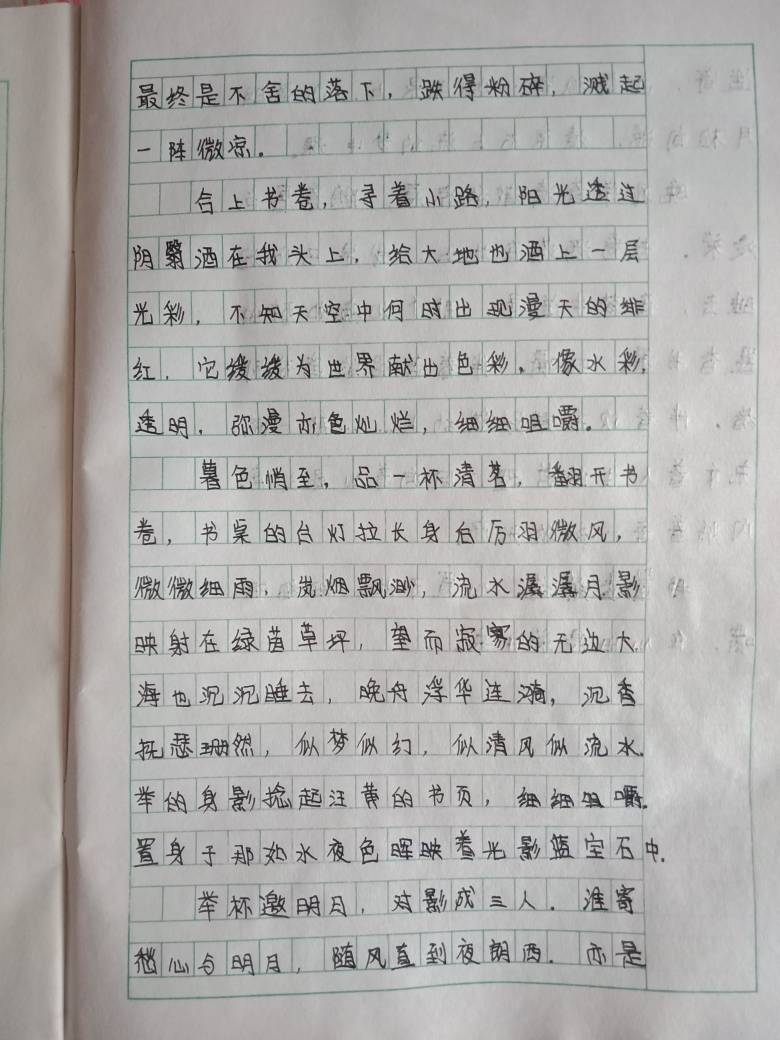 最终是不舍的落下，跌得粉碎，溅起
一阵微凉。
合上书卷，寻着小路，阳光透过
阴翳洒在我头上，给大地也洒上一层
光彩，不知天空中何时出现漫天的绯
红，它缓缓为世界献出色彩。像水彩，
透明，弥漫亦色灿烂，细细咀嚼。
暮色悄至，品一杯清茗，翻开书
卷，书桌的台灯拉长身后厉羽微风，
微微细雨，岚烟飘渺，流水潺潺月影
映射在绿茵草坪，望而寂寥的无边大
海也沉沉睡去，晚舟浮华涟漪，沉香
抚瑟珊然，似梦似幻，似清风似流水。
举的身影捻起泛黄的书页，细细咀嚼。
置身于那如水夜色晖映着光影蓝宝石中。
举杯邀明月，对影成三人。谁寄
愁心与明月，随风直到夜朗西。亦是